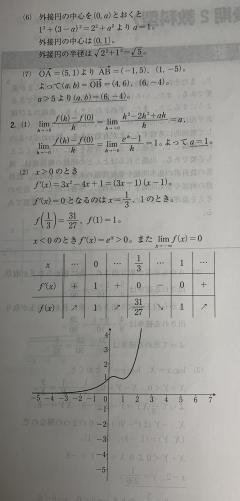 (6) 外接円の中心を(0, a)とおくと
1²+(3−a)²=2²+a²よりa=1。
外接円の中心は(0, 1)。
外接円の半径は√2²+1²=√5。
(7) OA=(5, 1)よりAB=(−1, 5), (1, −5)。
よって(a, b)=OB=(4, 6), (6, −4)。
a>5より(a, b)=(6, −4)。
2. (1) lim h→+0 f(h)−f(0)/h = lim h→+0 h³−2h²+ah/h =a,
lim h→−0 f(h)−f(0)/h = lim h→−0 eʰ−1/h =1。よってa=1。
(2) x>0のとき
f′(x)=3x²−4x+1=(3x−1)(x−1)。
f′(x)=0となるのはx=1/3, 1のとき。
f(1/3)=31/27, f(1)=1。
x<0のときf′(x)=eˣ>0。また lim x→−∞ f(x)=0
x … 0 … 1/3 … 1 …
f′(x) + 1 + 0 − 0 +
f(x) ↗ 1 ↗ 31/27 ↘ 1 ↗
4
3
2
1
−5 −4 −3 −2 −1 0 1 2 3 4 5 6 7
−1
−2
−3
−4
−5